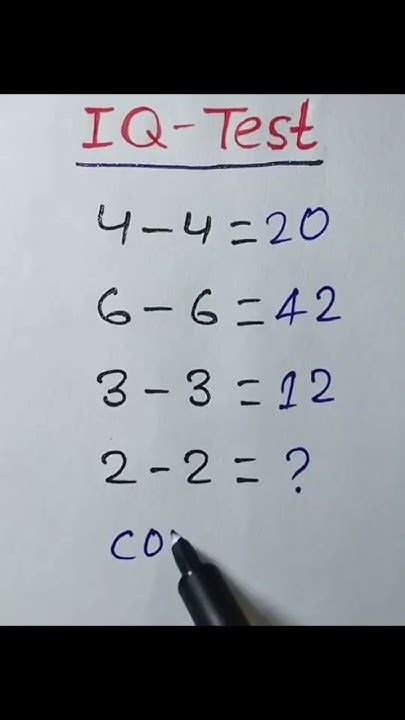 IQ-Test
4-4=20
6-6=42
3-3=12
2-2=?
CO